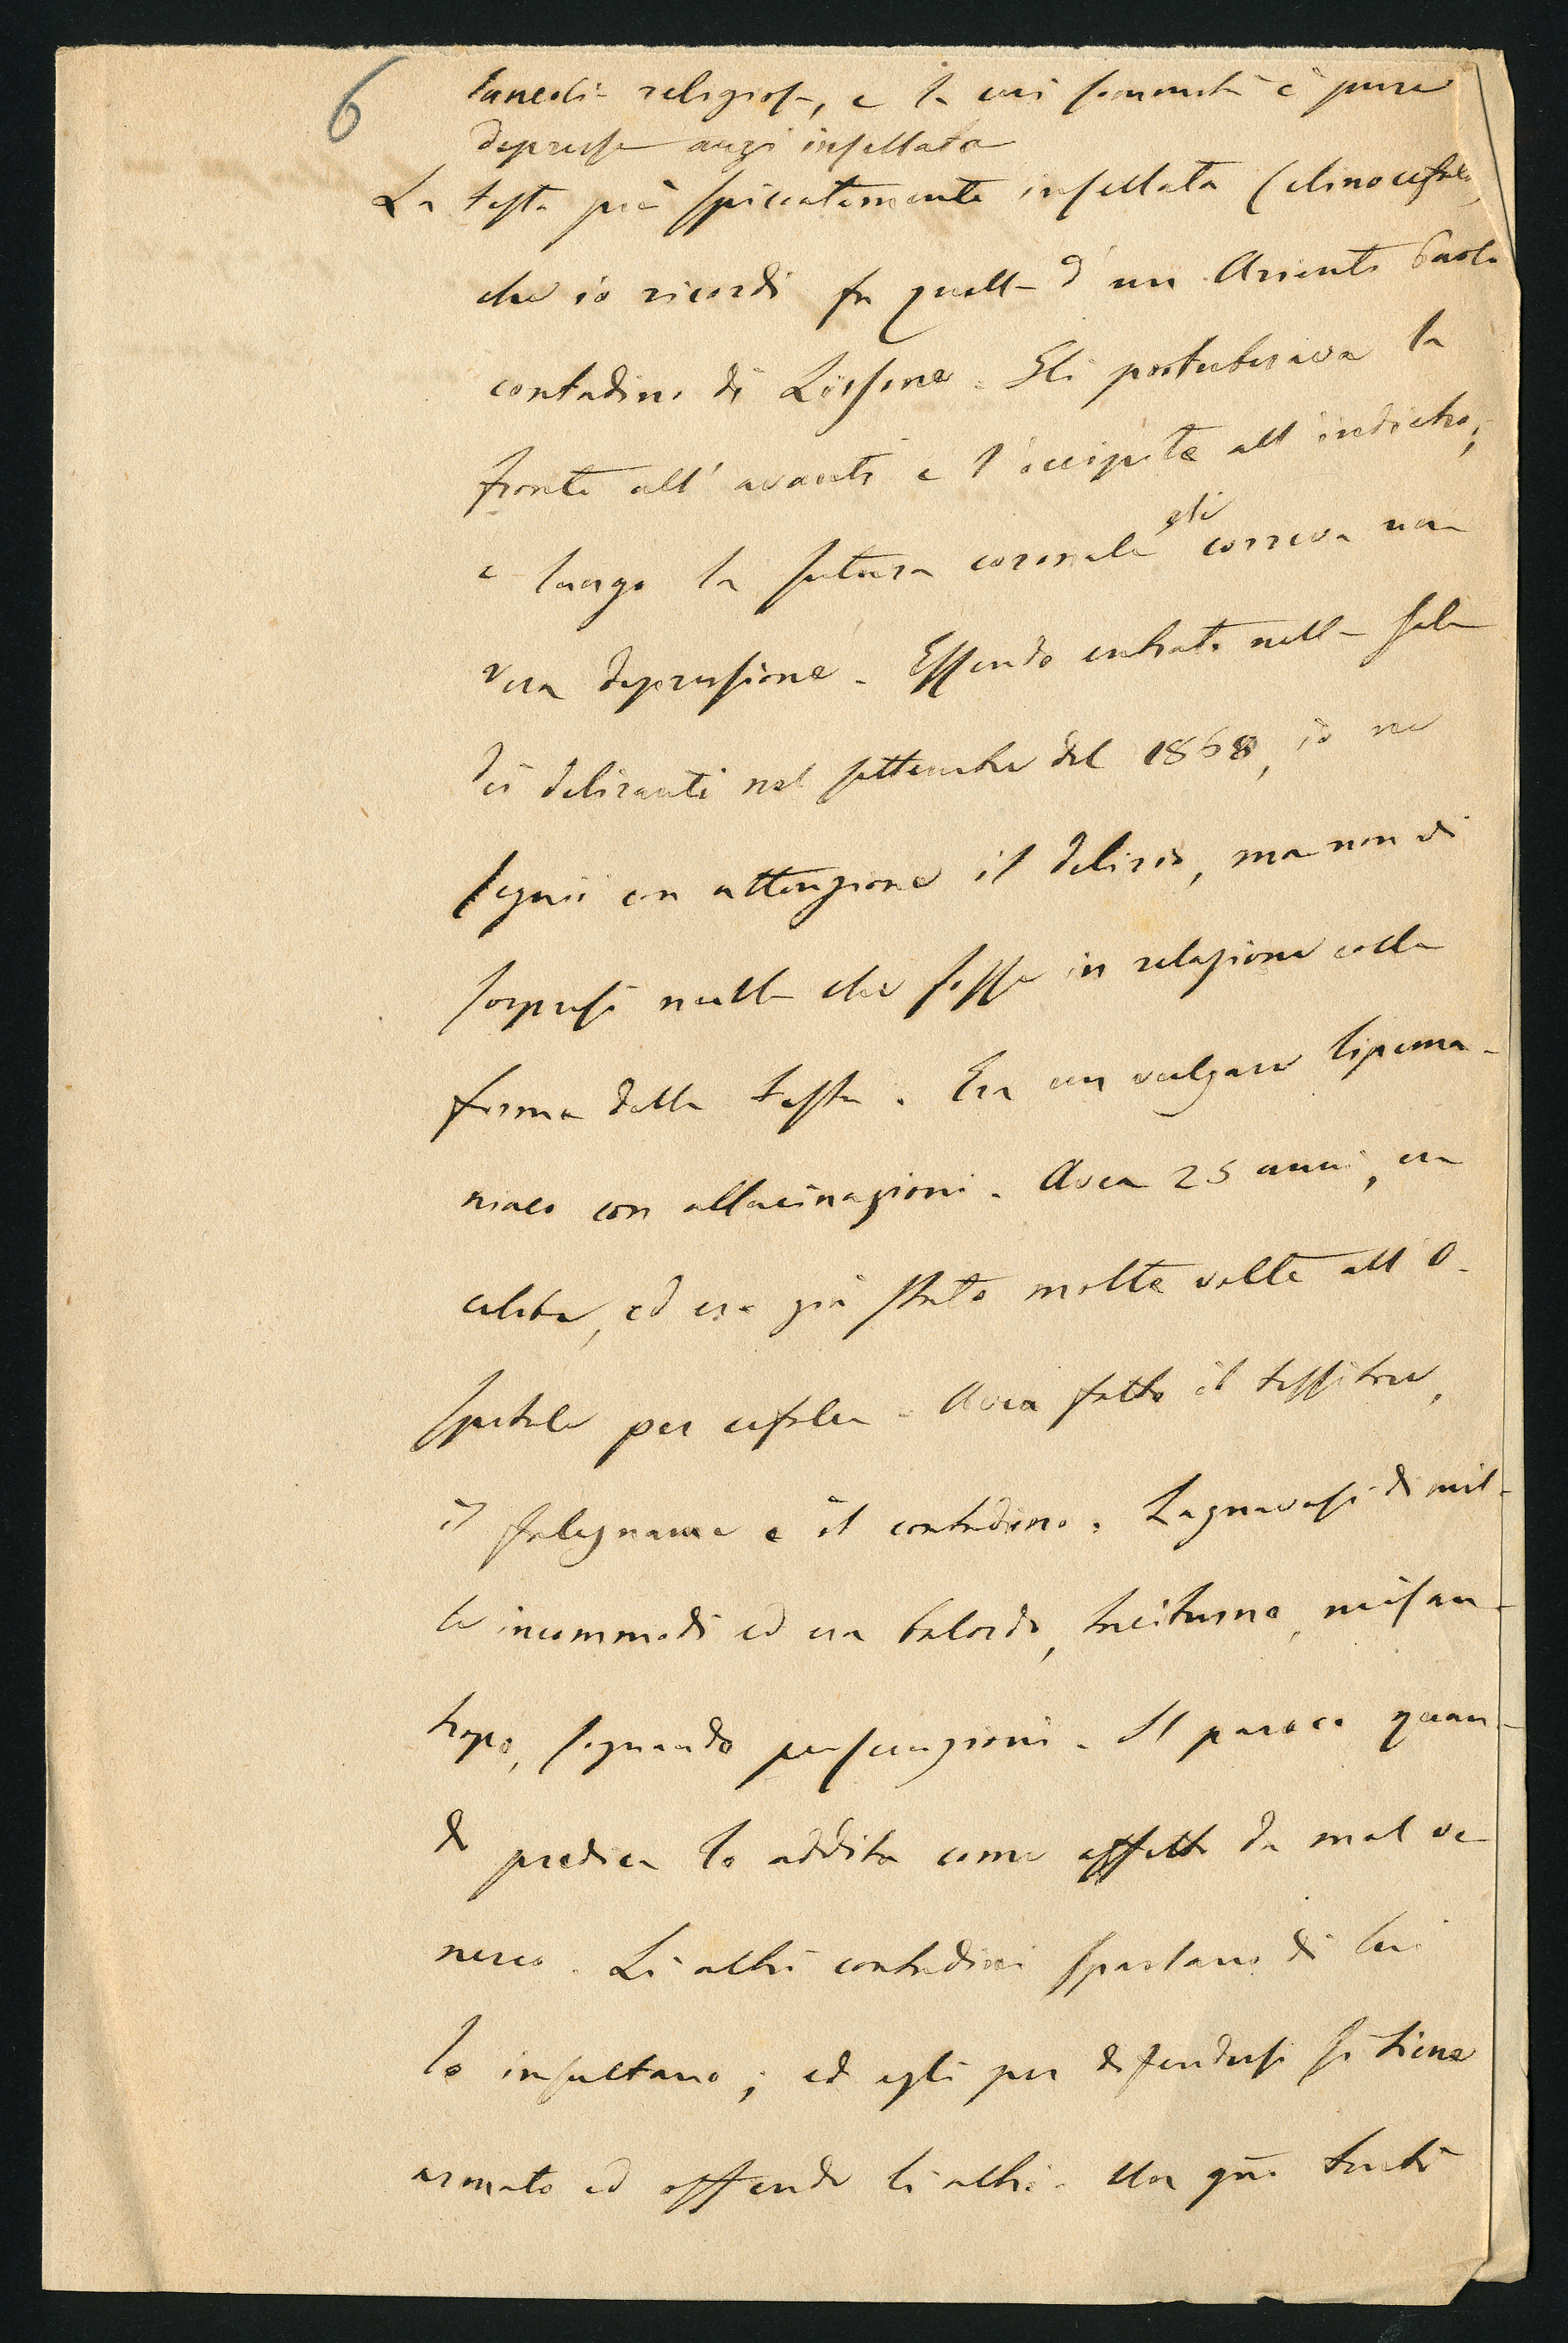 6
religiosa, e la cui sommità è pure
depressa anzi insellata
La testa più spiccatamente insellata (clinocefala)
che io ricordi fu quella d'un Arienti Paolo
contadino di Lissone. Gli protuberava la
fronte all'avanti e l'occipite all'indietro;
e lungo la sutura coronale gli correva una
vera depressione. Essendo entrato nella sala
dei deliranti nel settembre del 1868, io ne
seguii con attenzione il delirio, ma non vi
sorpresi nulla che fosse in relazione colla
forma della testa. Era un vulgare lipema-
niaco con allucinazioni. Avea 25 anni, era
celibe, ed era già stato molte volte all'O-
spitale per cefalea. Avea fatto il tessitore,
il falegname e il contadino. Lagnavasi di mil-
le incommodi ed era balordo, taciturno, misan-
tropo, sognando persecuzioni. Il paroco quan-
do predica lo addita come affetto da mal ve-
nereo. Li altri contadini sparlano di lui
lo insultano; ed egli per difendersi si tiene
armato ed offende li altri. Un gno tentò